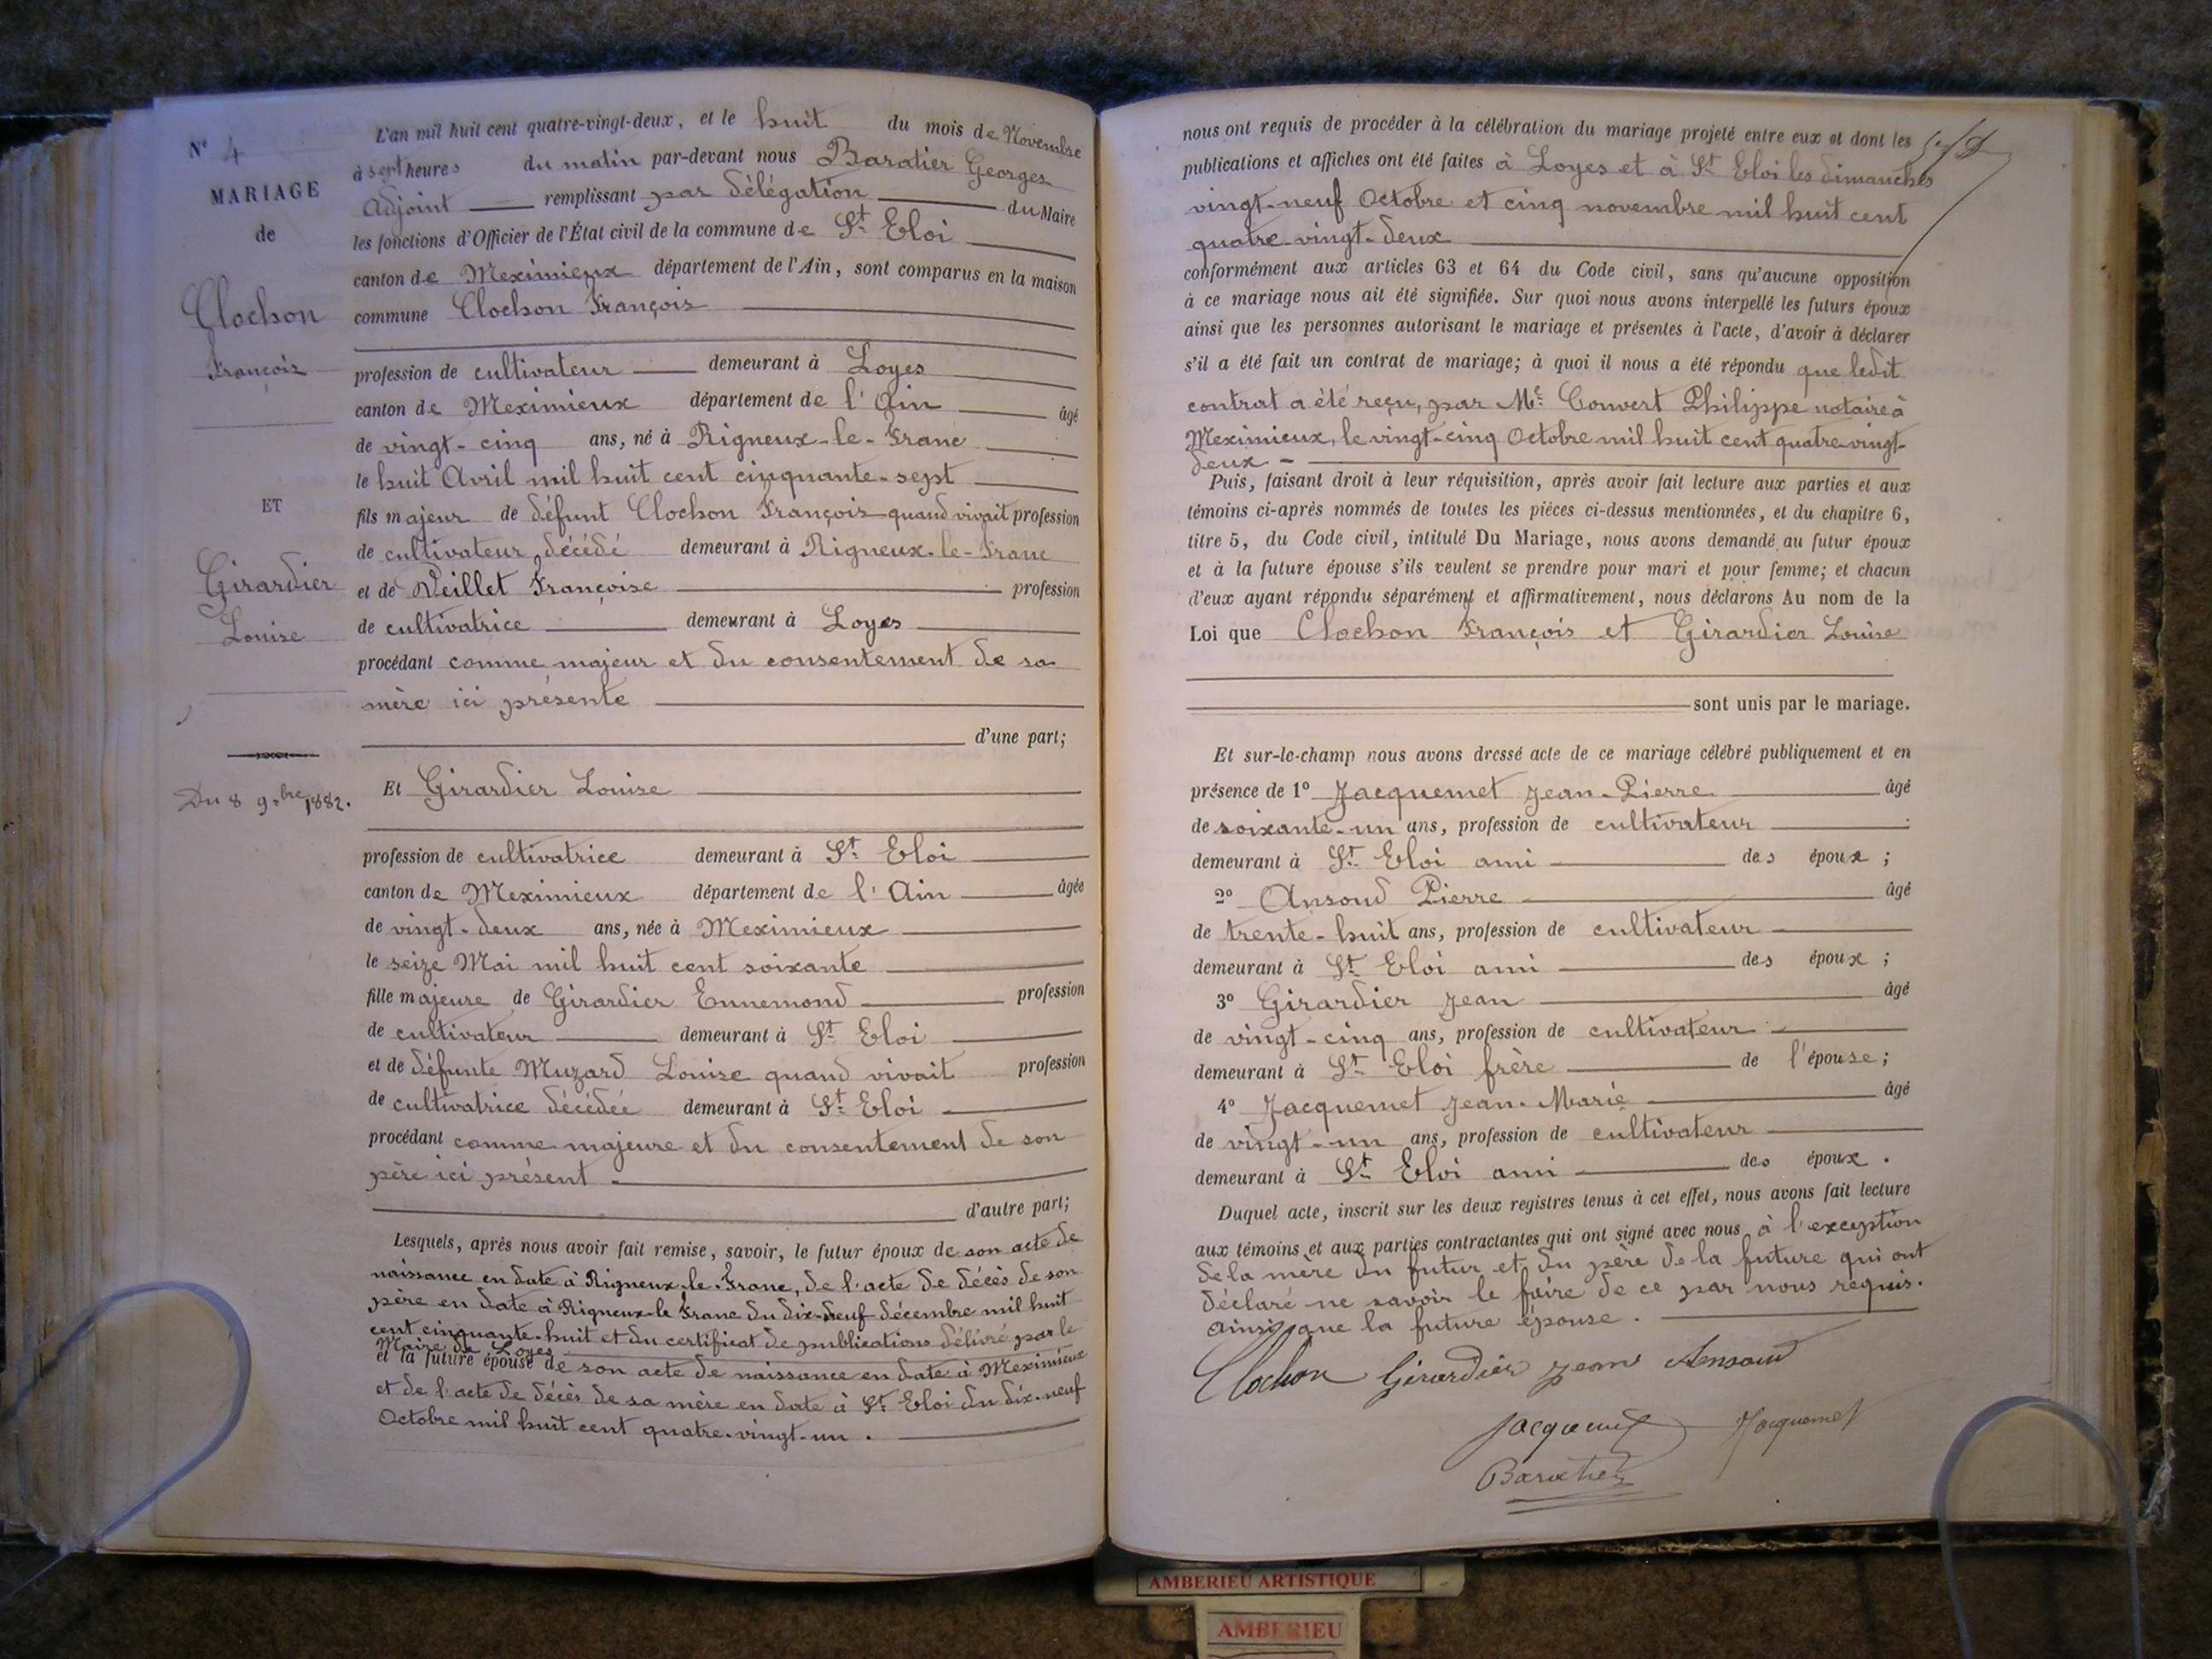 N° 4
MARIAGE
de
Clochon
François
ET
Girardier
Louise
Du 8 9bre 1882.
L'an mil huit cent quatre-vingt-deux, et le huit du mois de Novembre
à sept heures du matin par-devant nous Baratier Georges
Adjoint remplissant par délégation du Maire
les fonctions d'Officier de l'État civil de la commune de St Eloi
canton de Meximieux département de l'Ain, sont comparus en la maison
commune Clochon François
profession de cultivateur demeurant à Loyes
canton de Meximieux département de l'Ain âgé
de vingt-cinq ans, né à Rigneux-le-Franc
le huit Avril mil huit cent cinquante-sept
fils majeur de défunt Clochon François quand vivait profession
de cultivateur, décédé demeurant à Rigneux-le-Franc
et de Veillet Françoise profession
de cultivatrice demeurant à Loyes
procédant comme majeur et du consentement de sa
mère ici présente
d'une part;
Et Girardier Louise
profession de cultivatrice demeurant à St Eloi
canton de Meximieux département de l'Ain âgée
de vingt-deux ans, née à Meximieux
le seize Mai mil huit cent soixante
fille majeure de Girardier Ennemond profession
de cultivateur demeurant à St Eloi
et de défunte Muzard Louise quand vivait profession
de cultivatrice décédée demeurant à St Eloi
procédant comme majeure et du consentement de son
père ici présent
d'autre part;
Lesquels, après nous avoir fait remise, savoir, le futur époux de son acte de
naissance en date à Rigneux-le-Franc, de l'acte de décès de son
père en date à Rigneux-le Franc du dix-neuf décembre mil huit
cent cinquante-huit et du certificat de publications délivré par le
Maire de Loyes
et la future épouse de son acte de naissance en date à Meximieux
et de l'acte de décès de sa mère en date à St Eloi du dix-neuf
Octobre mil huit cent quatre-vingt-un.
nous ont requis de procéder à la célébration du mariage projeté entre eux et dont les
publications et affiches ont été faites à Loyes et à St Eloi les dimanches
vingt-neuf Octobre et cinq novembre mil huit cent
quatre-vingt-deux
conformément aux articles 63 et 64 du Code civil, sans qu'aucune opposition
à ce mariage nous ait été signifiée. Sur quoi nous avons interpellé les futurs époux
ainsi que les personnes autorisant le mariage et présentes à l'acte, d'avoir à déclarer
s'il a été fait un contrat de mariage; à quoi il nous a été répondu que ledit
contrat a été reçu, par Me Convert Philippe notaire à
Meximieux, le vingt-cinq Octobre mil huit cent quatre-vingt-
deux -
Puis, faisant droit à leur réquisition, après avoir fait lecture aux parties et aux
témoins ci-après nommés de toutes les pièces ci-dessus mentionnées, et du chapitre 6,
titre 5, du Code civil, intitulé Du Mariage, nous avons demandé au futur époux
et à la future épouse s'ils veulent se prendre pour mari et pour femme; et chacun
d'eux ayant répondu séparément et affirmativement, nous déclarons Au nom de la
Loi que Clochon François et Girardier Louise
sont unis par le mariage.
Et sur-le-champ nous avons dressé acte de ce mariage célébré publiquement et en
présence de 1° Jacquemet Jean-Pierre âgé
de soixante-un ans, profession de cultivateur
demeurant à St Eloi ami des époux;
2° Ansoud Pierre âgé
de trente-huit ans, profession de cultivateur
demeurant à St Eloi ami des époux;
3° Girardier Jean âgé
de vingt-cinq ans, profession de cultivateur
demeurant à St Eloi frère de l'épouse;
4° Jacquemet Jean-Marie âgé
de vingt-un ans, profession de cultivateur
demeurant à St Eloi ami des époux.
Duquel acte, inscrit sur les deux registres tenus à cet effet, nous avons fait lecture
aux témoins et aux parties contractantes qui ont signé avec nous, à l'exception
de la mère du futur et du père de la future qui ont
déclaré ne savoir le faire de ce par nous requis.
ainsi que la future épouse.
Clochon Girardier Jean Ansoud
Jacquemet Jacquemet
Baratier
AMBERIEU ARTISTIQUE
AMBERIEU